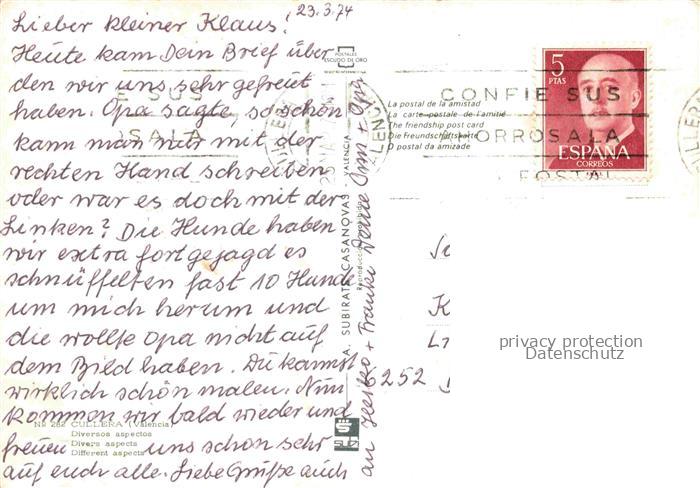 23.3.74
Lieber kleiner Klaus!
Heute kam Dein Brief über
den wir uns sehr gefreut
haben. Opa sagte, so schön
kann man nur mit der
rechten Hand schreiben
oder war es doch mit der
Linken? Die Hunde haben
wir extra fortgejagd es
schnüffelten fast 10 Hunde
um mich herum und
die wollte Opa nicht auf
dem Bild haben. Du kannst
wirklich schön malen. Nun
kommen wir bald wieder und
freuen uns schon sehr
auf euch alle. Liebe Grüße auch
an Heiko + Franke Deine Omi + Opa
No 262 CULLERA (Valencia)
Diversos aspectos
Divers aspects
Different aspects
POSTALES
ESCUDO DE ORO
A. SUBIRATS CASANOVAS - VALENCIA
SUB
La postal de la amistad
La carte postale de l'amitié
The friendship post card
Die Freundschaftskarte
O postal da amizade
E SUS
OSALA
CONFIE SUS
AHORROS A LA
POSTAL
CULLERA
5
PTAS
ESPAÑA
CORREOS
K
6252
privacy protection
Datenschutz